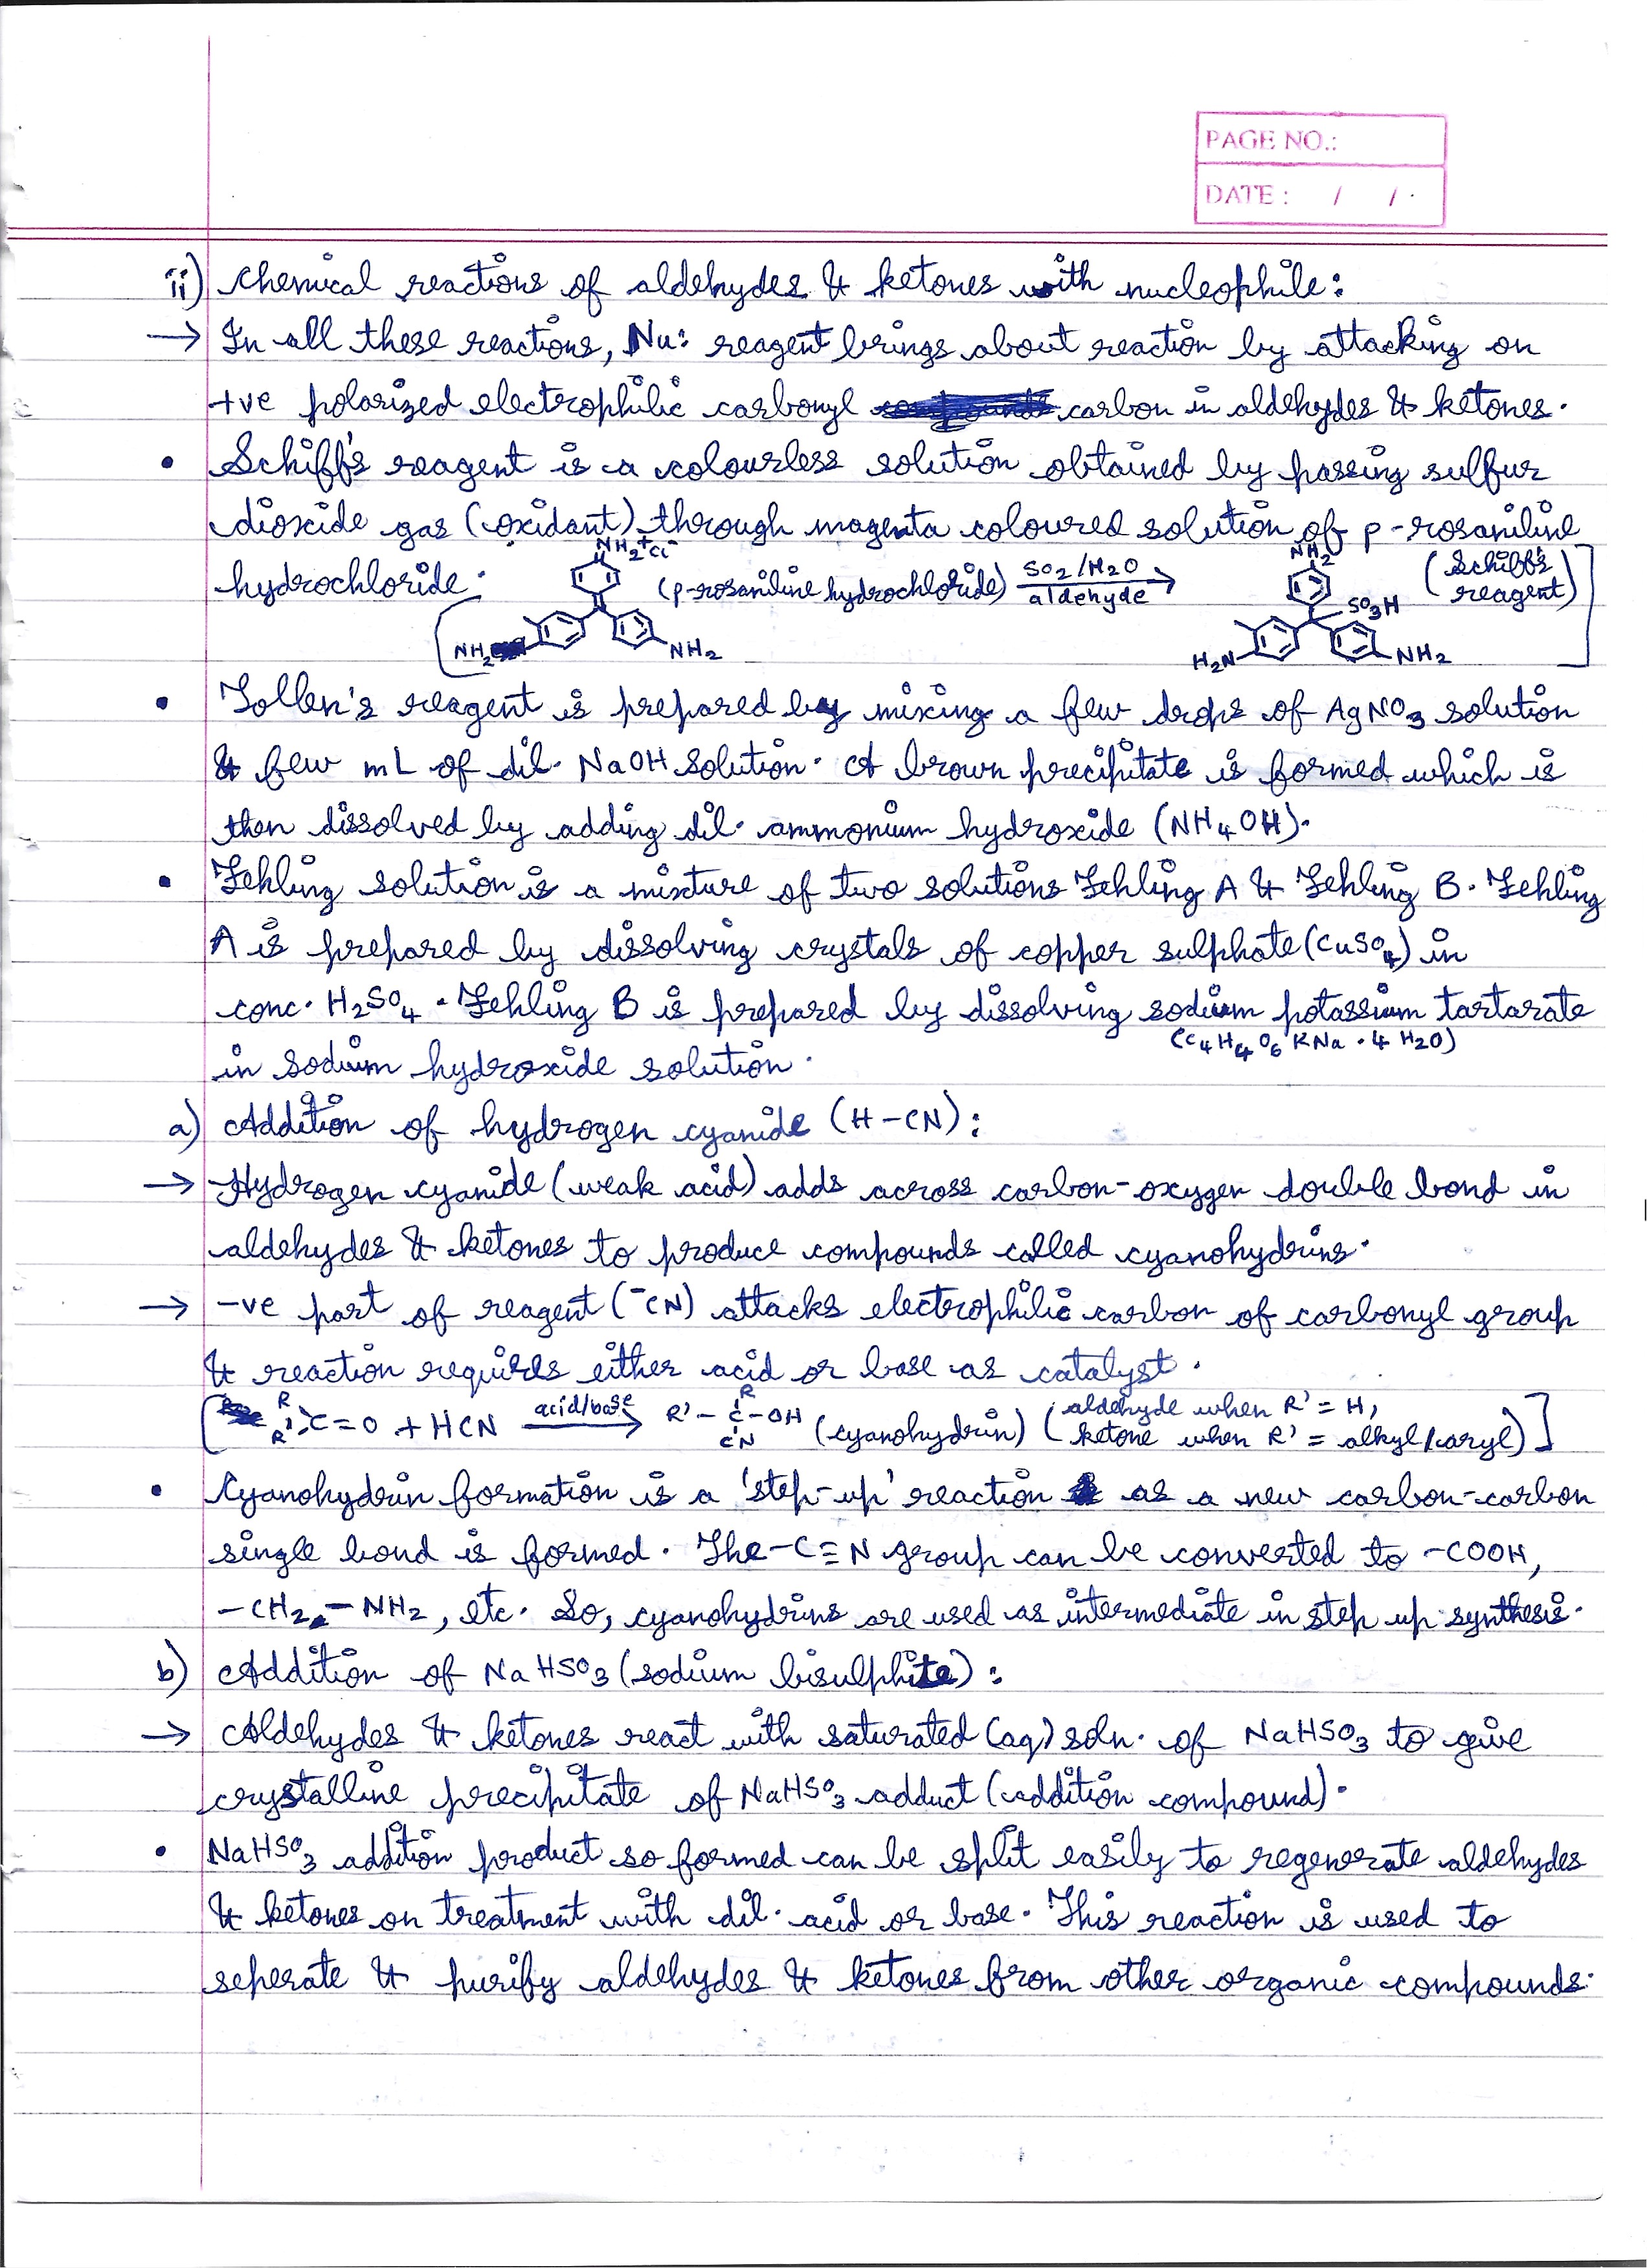 PAGE NO.:
DATE : / /
ii) Chemical reactions of aldehydes & ketones with nucleophile:
→ In all these reactions, Nu: reagent brings about reaction by attacking on
+ve polarized electrophilic carbonyl carbon in aldehydes & ketones.
• Schiff's reagent is a colourless solution obtained by passing sulfur
dioxide gas (oxidant) through magenta coloured solution of p-rosaniline
hydrochloride.
NH2+Cl-
NH2
NH2
(p-rosaniline hydrochloride) SO2/H2O aldehyde →
NH2
SO3H
H2N
NH2
(Schiff's reagent)]
• Tollen's reagent is prepared by mixing a few drops of AgNO3 solution
& few mL of dil. NaOH solution. A brown precipitate is formed which is
then dissolved by adding dil. ammonium hydroxide (NH4OH).
• Fehling solution is a mixture of two solutions Fehling A & Fehling B. Fehling
A is prepared by dissolving crystals of copper sulphate (CuSO4) in
conc. H2SO4. Fehling B is prepared by dissolving sodium potassium tartarate
(C4H4O6KNa.4H2O)
in sodium hydroxide solution.
a) Addition of hydrogen cyanide (H-CN):
→ Hydrogen cyanide (weak acid) adds across carbon-oxygen double bond in
aldehydes & ketones to produce compounds called cyanohydrins.
→ -ve part of reagent (-CN) attacks electrophilic carbon of carbonyl group
& reaction requires either acid or base as catalyst.
[R R' >C=O + HCN acid/base → R'-C-OH R CN (cyanohydrin) (aldehyde when R'=H,
ketone when R' = alkyl/aryl)]
• Cyanohydrin formation is a 'step-up' reaction as a new carbon-carbon
single bond is formed. The -C≡N group can be converted to -COOH,
-CH2-NH2, etc. So, cyanohydrins are used as intermediate in step up synthesis.
b) Addition of NaHSO3 (sodium bisulphite):
→ Aldehydes & ketones react with saturated (aq) soln. of NaHSO3 to give
crystalline precipitate of NaHSO3 adduct (addition compound).
• NaHSO3 addition product so formed can be split easily to regenerate aldehydes
& ketones on treatment with dil. acid or base. This reaction is used to
seperate & purify aldehydes & ketones from other organic compounds.